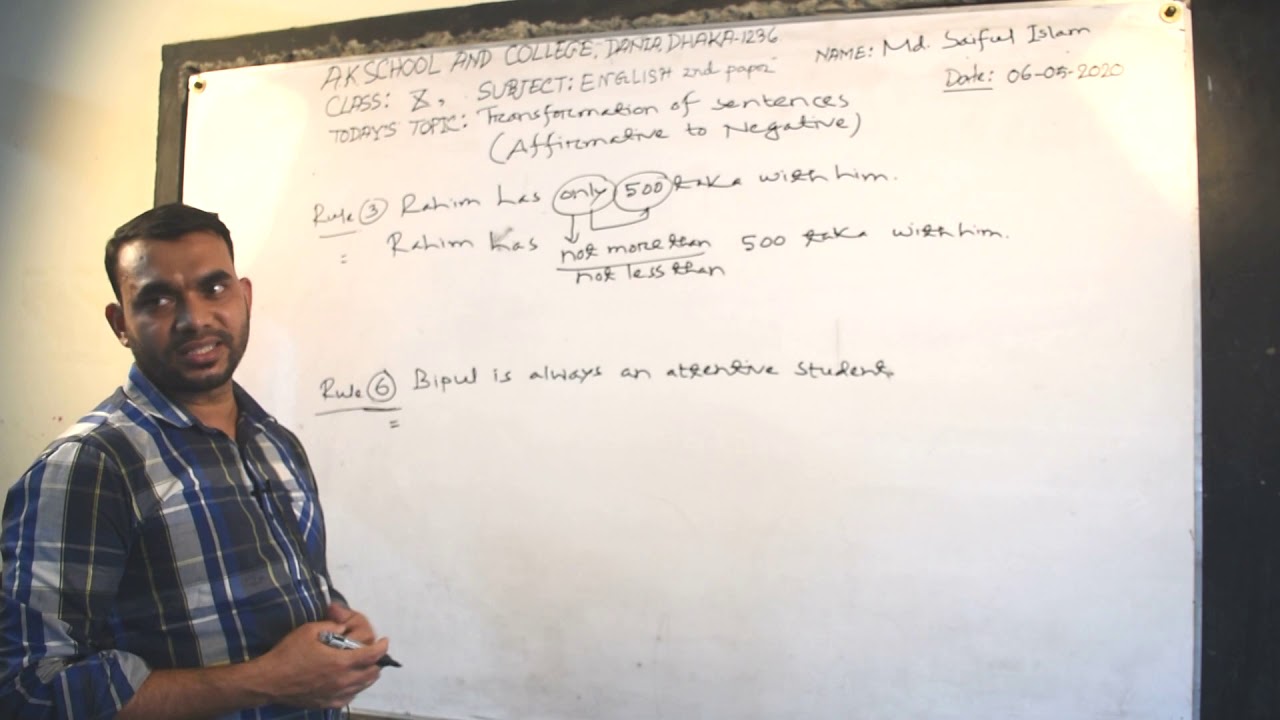 A.K SCHOOL AND COLLEGE, DANIA, DHAKA-1236
NAME: Md. Saiful Islam
CLASS: X, SUBJECT: ENGLISH 2nd paper
Date: 06-05-2020
TODAY'S TOPIC: Transformation of sentences
(Affirmative to Negative)
Rule ③ Rahim has only 500 taka with him.
= Rahim has not more than 500 taka with him.
not less than
Rule ⑥ Bipul is always an attentive student.
=